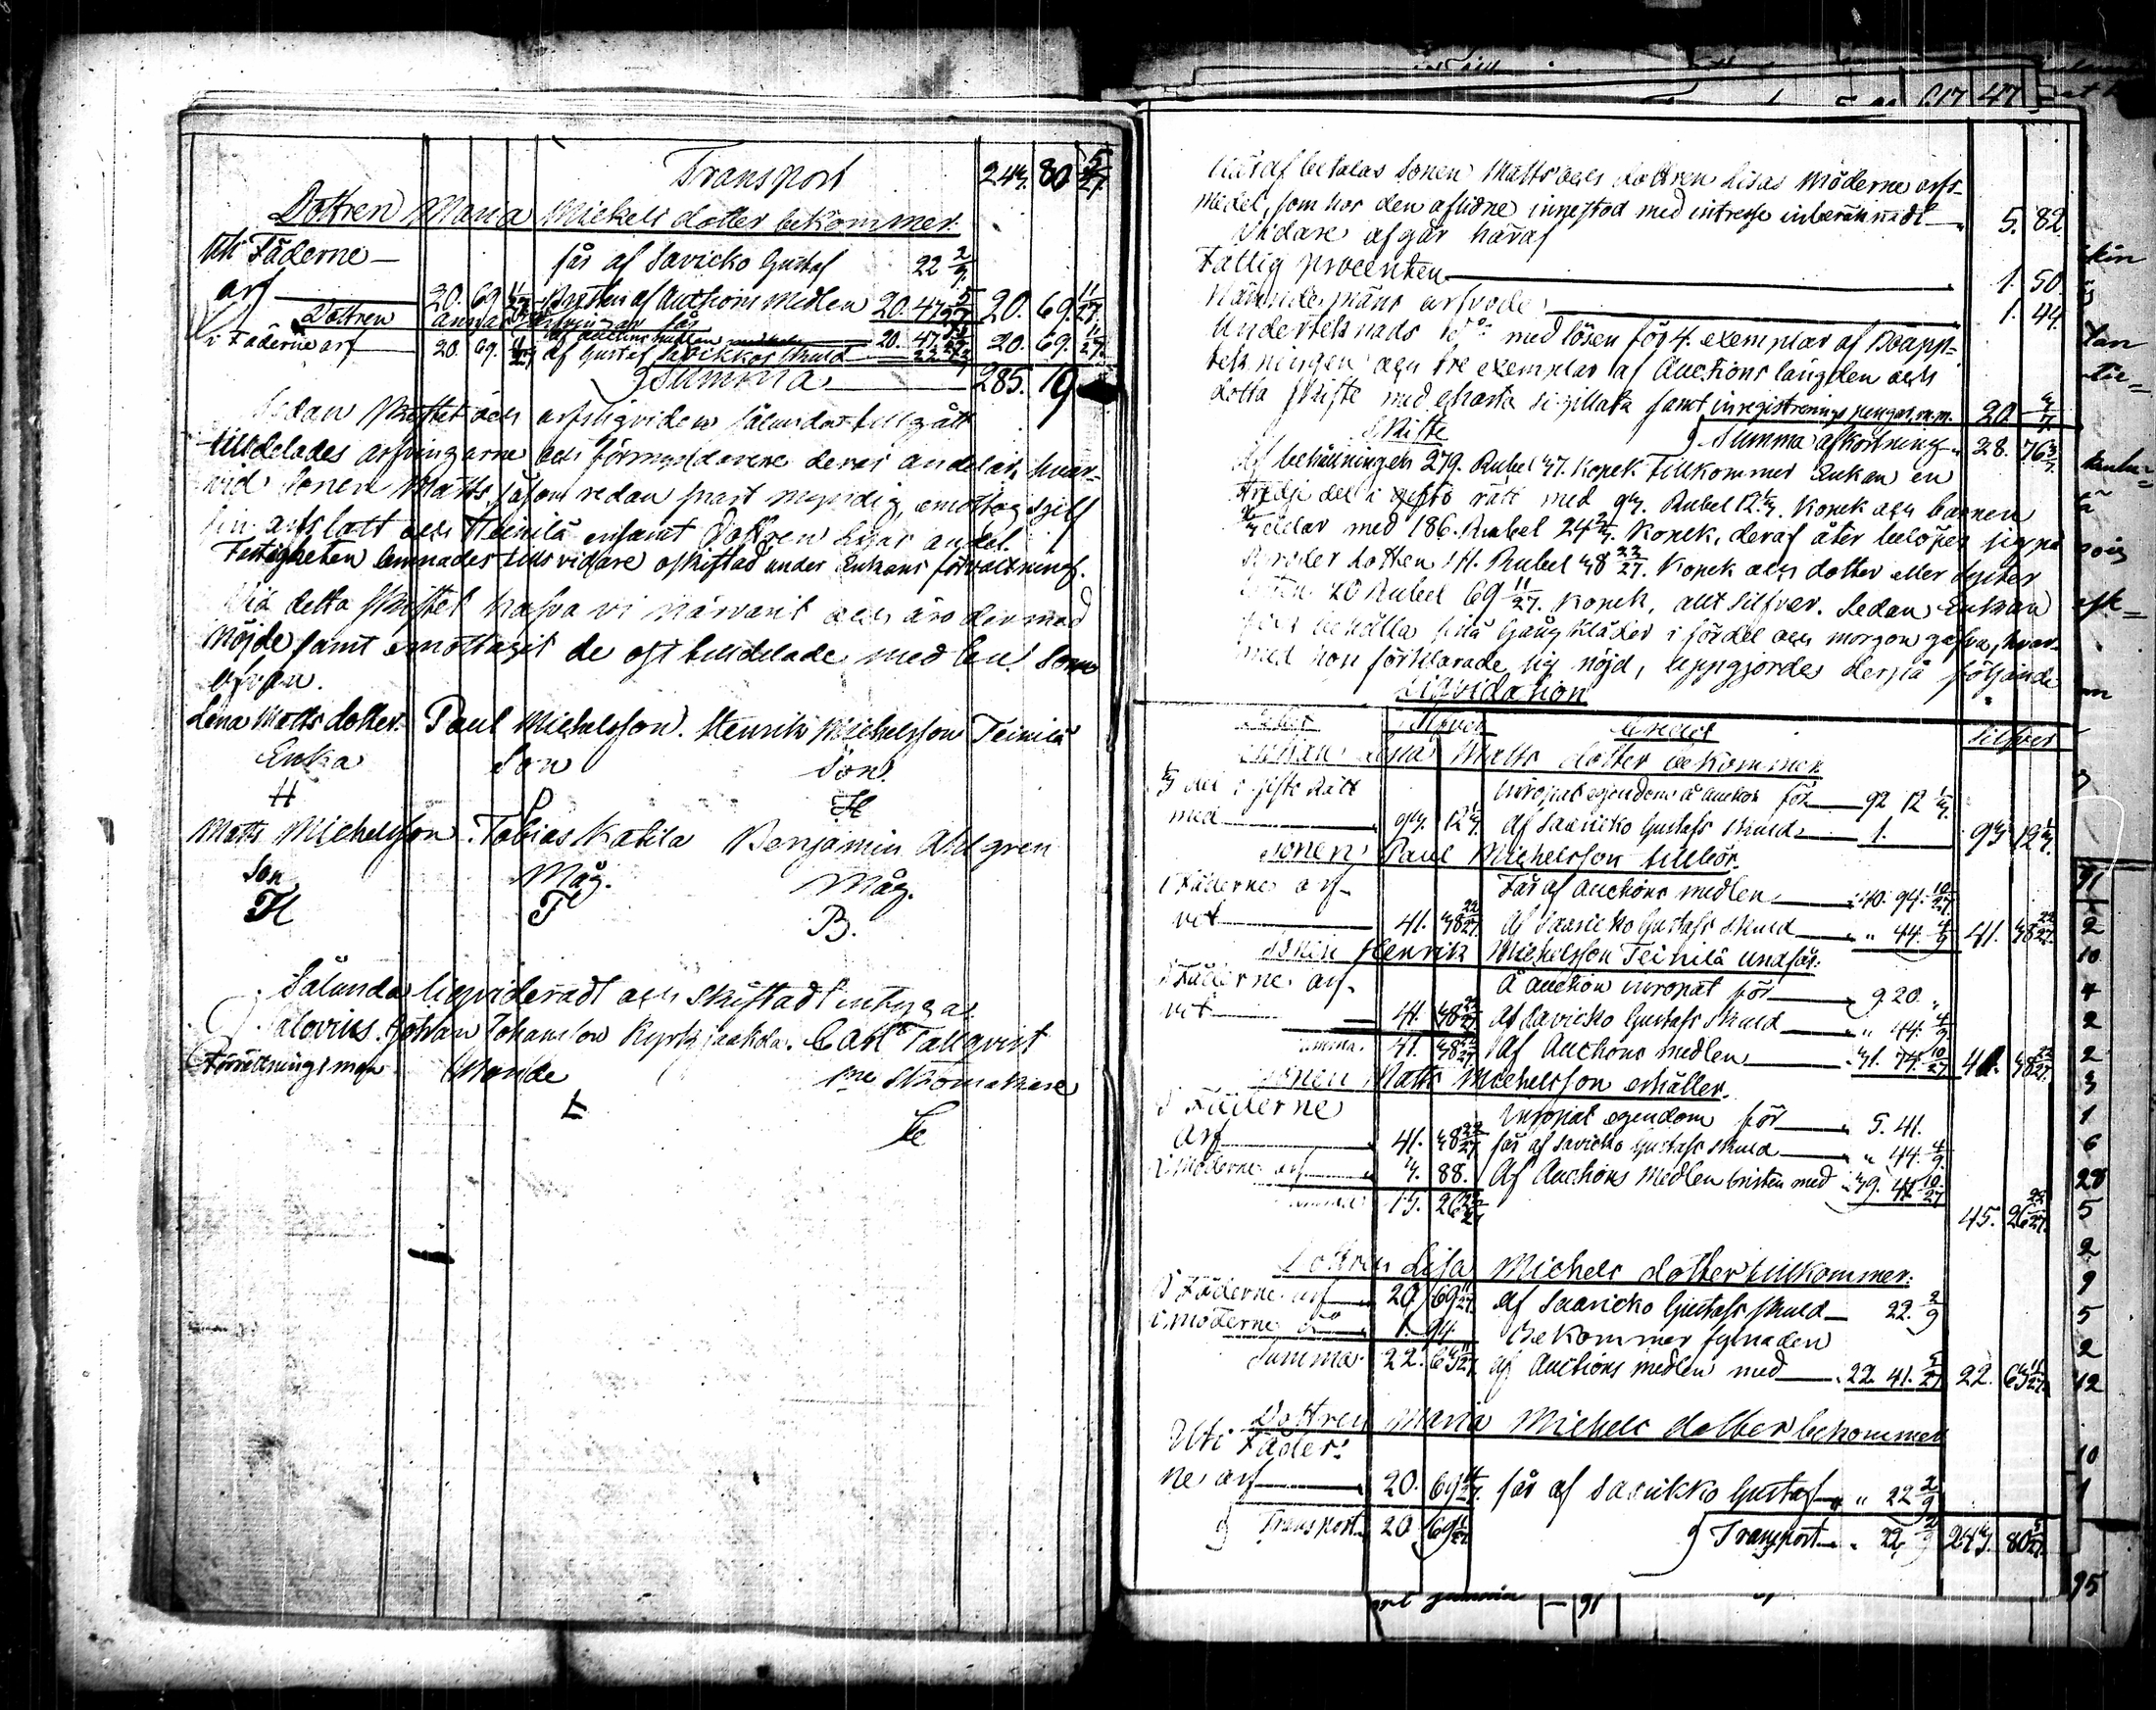 Transport 243. 80 5/27.
Dottren Maria Mickels dotter bekommer.
Uti Fäderne— får af Savicko Gustaf 22 2/9.
arf 20. 69 11/27. Bristen af Auctions medlen 20. 47 5/27 20. 69. 11/27.
Dottren Annas får
i Fäderne arf 20. 69. 11/27 af Auctions medlen 20. 47. 5/27
af Gustaf Savikkos skuld 22 2/9 20. 69. 11/27.
Summa 285. 19
Sedan skiftet och arfsliqviden sålunda tillgått
tilldelades arfvingarne och förmyndarene deras andelar, hvar-
vid Sonen Matts, såsom redan snart myndig, emottog sjelf
sin arfslott och Heinilä ensamt Dottren Lisas andel.
Fastigheten lemnades tills vidare oskiftad under Enkans förvaltning.
Vid detta skiftet hafva vi närvarit och äro dermed
nöjde samt emottagit de oss tilldelade medlen som
ofvan.
Lena Matts dotter. Paul Michelsson. Henrik Michelsson Teinilä
Enka Son Son.
H P H
Matts Michelsson. Tobias Katila Benjamin Ahlgren
Son Måg. Måg.
M T B.
Sålunda liqvideradt och skiftadt intygar
Johan Johansson Carl Tallqvist
Förrättningsman Bonde Skomakare
Häraf betalas Sonen Matts och dottren Lisas Möderne arfs-
medel, som hos den aflidne innestod med intresse inberäknadt 5. 82.
Vidare afgår häraf
Fattig procenten 1. 50.
Nämndemäns arfvode 1. 44.
Undertecknads d:o med lösen för 4. exemplar af Boupp-
teckningen och tre exemplar af Auctions längden och
detta skifte med charta sigillata samt inregistrerings pengar m.m. 20.
Skifte Summa afkortning 28. 76 3/7.
Af behållningen 279. Rubel 37. Kopek Tillkommer Enkan en
tredje del i gifto rätt med 93. Rubel 12 1/3. Kopek och barnen
2/3 delar med 186. Rubel 24 2/3. Kopek, deraf åter belöper sig på
Broder lotten 41. Rubel 38 22/27. Kopek och dotter eller Syster
lotten 20 Rubel 69 11/27. Kopek, allt Silfver. Sedan Enkan
fått behålla sina Gångkläder i fördel och morgon gåfva, hvar-
med hon förklarade sig nöjd, uppgjordes derpå följande
Liqvidation
Debet Silfver Credit Silfver
Enkan Lena Matts dotter bekommer
1/3 del i gifto rätt Inropat egendom å auction för 92 12 1/3.
med 93. 12 1/3. af Saaricko Gustafs skuld 1. 93 12 1/3.
Sonen Paul Michelsson tillhör.
i Fäderne arf- Får af Auctions medlen 40. 94. 10/27
vet 41. 38 22/27. af Saaricko Gustafs skuld „ 44. 4/9 41. 38 22/27.
Sonen Henrik Michelsson Teinilä undfår.
i Fäderne arf- Å auction inropat för 9. 20. „
vet 41. 38 22/27 af Savicko Gustafs skuld „ 44. 4/9.
Summa 41. 38 22/27 af Auctions medlen 31. 74. 10/27 41. 38 22/27.
Sonen Matts Michelsson erhåller.
i Fäderne Inropat egendom för 5. 41.
Arf 41. 38 22/27 får af Savicko Gustafs skuld „ 44. 4/9.
i Möderne arf 3. 88. Af Auctions Medlen bristen med 39. 41 10/27
Summa 45. 26 22/27 45. 26 22/27.
Dottren Lisa Michels dotter tillkommer.
i Fäderne arf 20. 69 11/27. af Saaricko Gustafs skuld— 22. 2/9
i möderne d:o 1. 94. Bekommer fylnaden
Summa 22. 63 11/27 af Auctions medlen med 22. 41. 5/27 22. 63 11/27
Dottren Maria Michels dotter bekommer
Uti Fäder-
ne arf 20. 69 11/27. får af Saarikko Gustaf „ 22 2/9
Transport 20 69 11/27. Transport 22 2/9 243. 80 5/27.